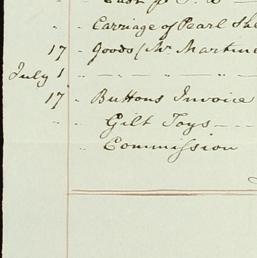 " " Carriage of Pearl She
" 17 " Goods (Mr Martine
July 1 " "
" 17 " Buttons Invoice
" " Gilt Toys
" Commission